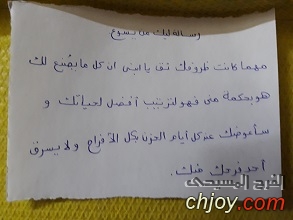 رسالة ليك من يسوع
مهما كانت ظروفك ثق يا ابنى ان كل ما يصنع لك
هو بحكمة منى فهو لترتيب أفضل لحياتك و
سأعوضك عن كل أيام الحزن بكل الأفراح ولا يسرق
أحد فرحك منك.
الفرح المسيحى
chjoy.com